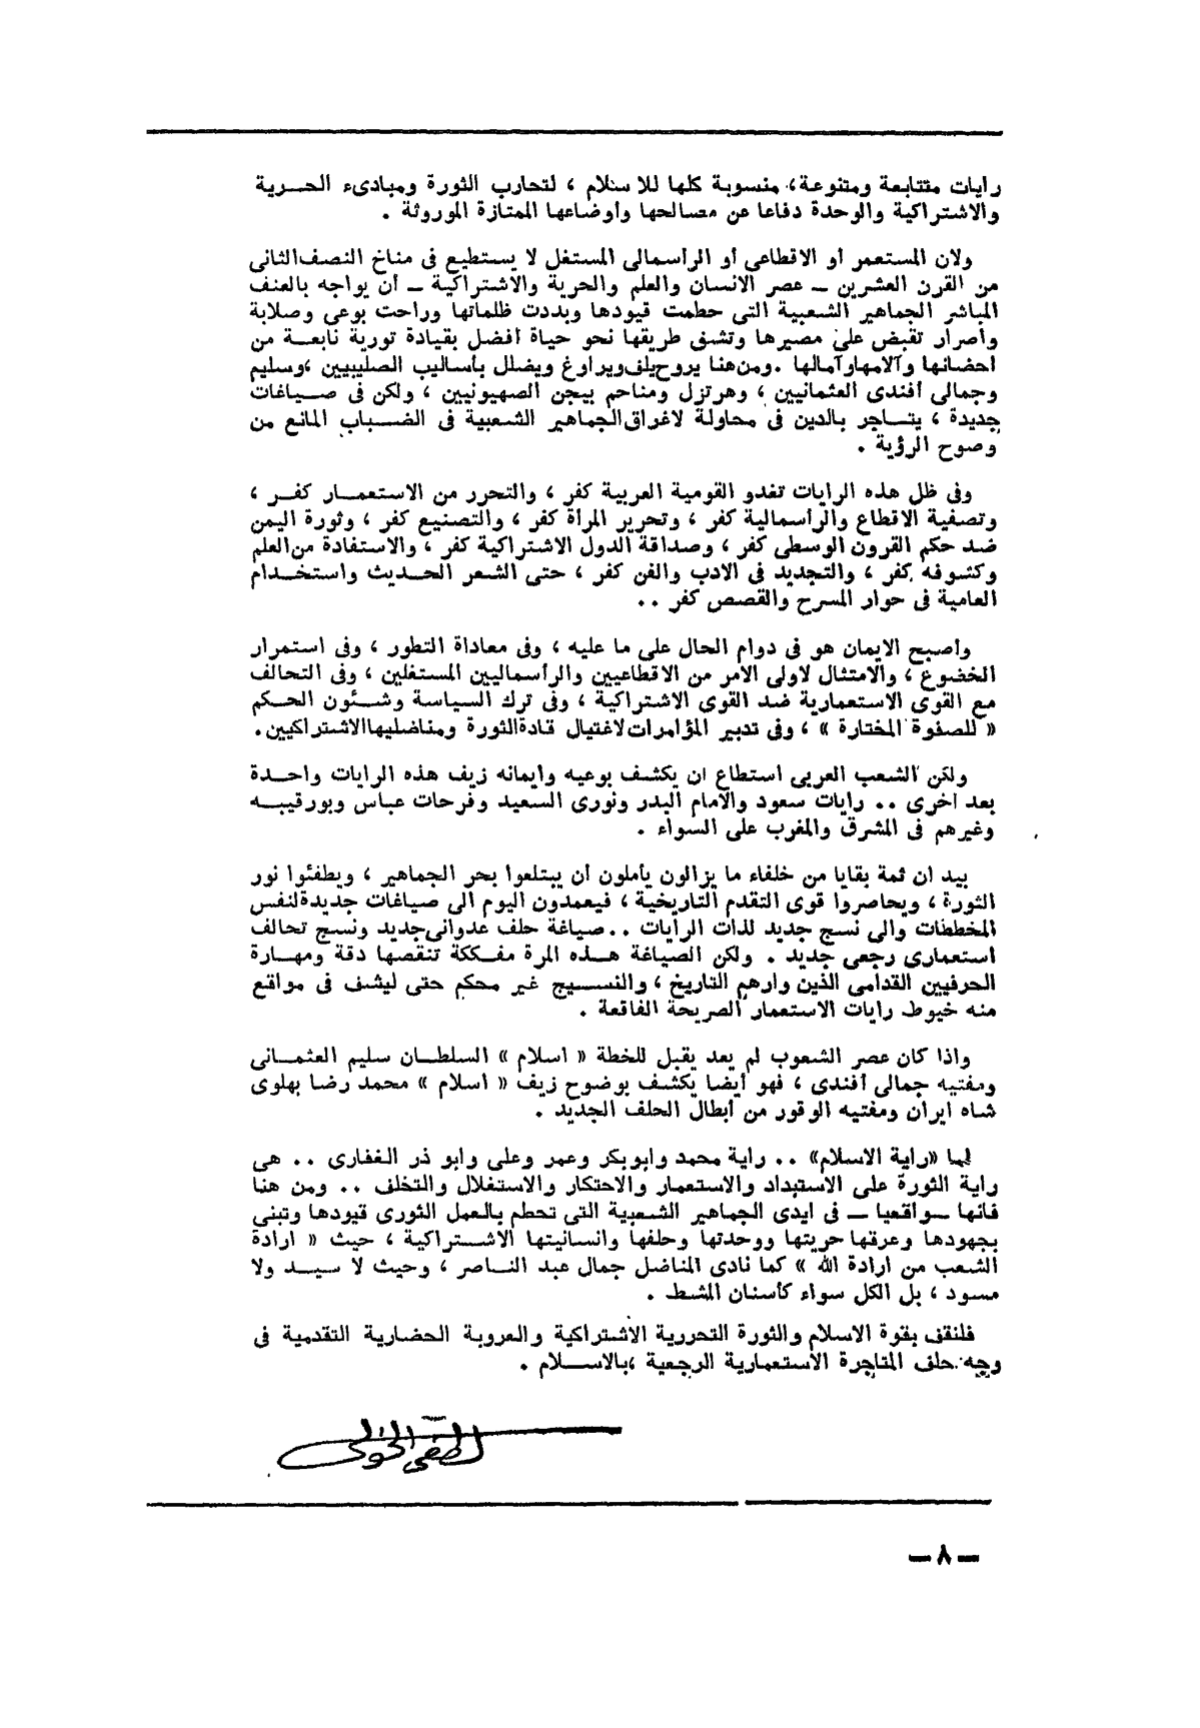 رايات متتابعة ومتنوعة، منسوبة كلها للاسلام ، لتحارب الثورة ومبادىء الحرية
والاشتراكية والوحدة دفاعا عن مصالحها وأوضاعها الممتازة الموروثة .
ولان المستعمر أو الاقطاعى أو الرأسمالى المستغل لا يستطيع فى مناخ النصف الثانى
من القرن العشرين ــ عصر الانسان والعلم والحرية والاشتراكية ــ أن يواجه بالعنف
المباشر الجماهير الشعبية التى حطمت قيودها وبددت ظلماتها وراحت بوعى وصلابة
وأصرار تقبض على مصيرها وتشق طريقها نحو حياة أفضل بقيادة ثورية نابعة من
احضانها وآلامها وآمالها . ومن هنا يروح يلف ويراوغ ويضلل بأساليب الصليبيين ، وسليم
وجمالى أفندى العثمانيين ، وهرتزل ومناحم بيجن الصهيونيين ، ولكن فى صياغات
جديدة ، يتاجر بالدين فى محاولة لاغراق الجماهير الشعبية فى الضباب المانع من
وصوح الرؤية .
وفى ظل هذه الرايات تغدو القومية العربية كفر ، والتحرر من الاستعمار كفر ،
وتصفية الاقطاع والرأسمالية كفر ، وتحرير المرأة كفر ، والتصنيع كفر ، وثورة اليمن
ضد حكم القرون الوسطى كفر ، وصداقة الدول الاشتراكية كفر ، والاستفادة من العلم
وكشوفه كفر ، والتجديد فى الادب والفن كفر ، حتى الشعر الحديث واستخدام
العامية فى حوار المسرح والقصص كفر ..
وأصبح الايمان هو فى دوام الحال على ما عليه ، وفى معاداة التطور ، وفى استمرار
الخضوع ، والامتثال لاولى الامر من الاقطاعيين والرأسماليين المستغلين ، وفى التحالف
مع القوى الاستعمارية ضد القوى الاشتراكية ، وفى ترك السياسة وشئون الحكم
« للصفوة المختارة » ، وفى تدبير المؤامرات لاغتيال قادة الثورة ومناضليها الاشتراكيين.
ولكن الشعب العربى استطاع ان يكشف بوعيه وايمانه زيف هذه الرايات واحدة
بعد اخرى .. رايات سعود والامام البدر ونورى السعيد وفرحات عباس وبورقيبه
وغيرهم فى المشرق والمغرب على السواء .
بيد ان ثمة بقايا من خلفاء ما يزالون يأملون أن يبتلعوا بحر الجماهير ، ويطفئوا نور
الثورة ، ويحاصروا قوى التقدم التاريخية ، فيعمدون اليوم الى صياغات جديدة لنفس
المخططات والى نسج جديد لذات الرايات .. صياغة حلف عدوانى جديد ونسج تحالف
استعمارى رجعى جديد . ولكن الصياغة هذه المرة مفككة تنقصها دقة ومهارة
الحرفيين القدامى الذين وارهم التاريخ ، والنسيج غير محكم حتى ليشف فى مواقع
منه خيوط رايات الاستعمار الصريحة الفاقعة .
واذا كان عصر الشعوب لم يعد يقبل للخطة « اسلام » السلطان سليم العثمانى
ومفتيه جمالى أفندى ، فهو أيضا يكشف بوضوح زيف « اسلام » محمد رضا بهلوى
شاه ايران ومفتيه الوقور من أبطال الحلف الجديد .
اما «راية الاسلام» .. راية محمد وابو بكر وعمر وعلى وابو ذر الغفارى .. هى
راية الثورة على الاستبداد والاستعمار والاحتكار والاستغلال والتخلف .. ومن هنا
فانها ــ واقعيا ــ فى ايدى الجماهير الشعبية التى تحطم بالعمل الثورى قيودها وتبنى
بجهودها وعرقها حريتها ووحدتها وحلفها وانسانيتها الاشتراكية ، حيث « ارادة
الشعب من ارادة الله » كما نادى المناضل جمال عبد الناصر ، وحيث لا سيد ولا
مسود ، بل الكل سواء كأسنان المشط .
فلنقف بقوة الاسلام والثورة التحررية الاشتراكية والعروبة الحضارية التقدمية فى
وجه حلف المتاجرة الاستعمارية الرجعية ،بالاسلام .
لطفى الخولى
ــ ٨ ــ